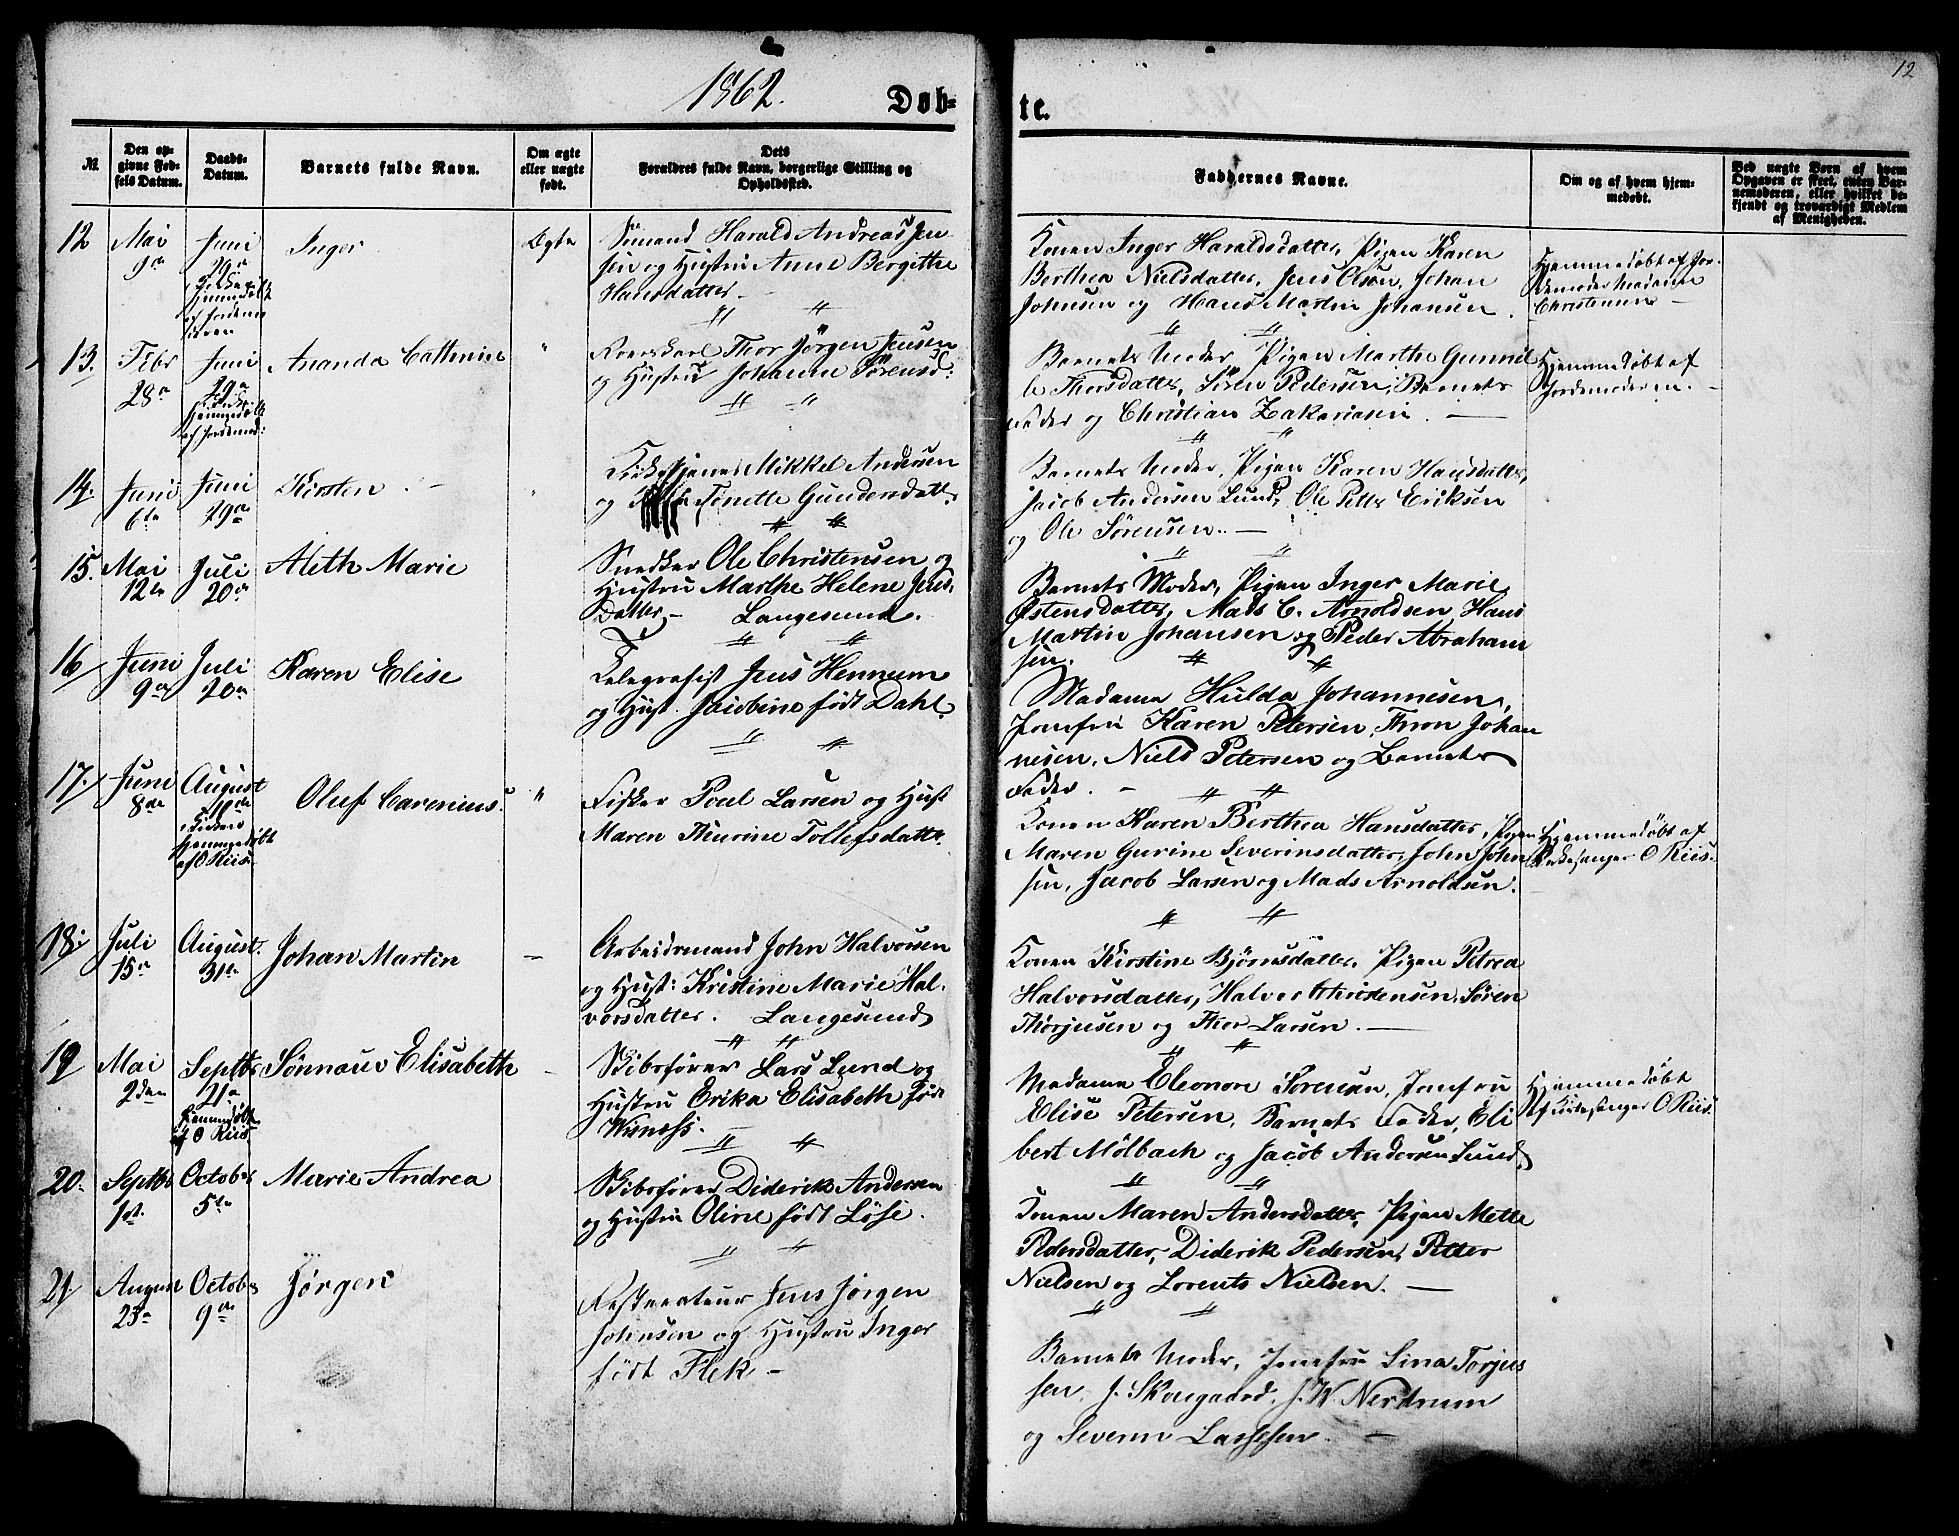 12
1862.
Døb-
te.
№
Den op-
givne Fød-
sels Datum.
Daabs-
Datum.
Barnets fulde Navn.
Om ægte
eller uægte
født.
Dets
Forældres fulde Navn, borgerlige Stilling og
Opholdssted.
Faddernes Navne.
Om og af hvem hjem-
medøbt.
Ved uægte Børn af hvem
Opgaven er skeet, enten Bar-
nemoderen, eller hvilket be-
kjendt og troværdigt Medlem
af Menigheden.
12
Mai
9de
Juni
29de
i Kirken
hjemmedøbt
af Jordemo
deren
Inger
Ægte
Sømand Harald Andreas Jen
sen og Hustru Anne Bergitte
Hansdatter.
Konen Inger Haraldsdatter, Pigen Karen
Berthea Nielsdatter, Jens Olsen, Johan
Johnsen og Hans Martin Johansen.
Hjemmedøbt af Jor-
demoder Madame
Christensen
13.
Febr
28de
Juni
29de
i Kirken
hjemmedøbt
af Jordemod:
Ananda Cathrine
"
Thor Jørgen Jensen
og Hustru Johanne Sørensd:
Barnets Moder, Pigen Marthe Gunnil
de Thorsdatter, Søren Pedersen, Barnets
Fader og Christian Zakariasen.
Hjemmedøbt af
Jordemoderen.
14.
Juni
6te
Juni
29de
Kirsten
"
Mikkel Andersen
og Tonette Gundersdatter
Barnets Moder, Pigen Karen Hansdatter,
Jacob Andersen Lund, Ole Petter Eriksen
og Ole Sørensen.
15.
Mai
12te
Juli
20de
Aleth Marie
Snedker Ole Christensen og
Hustru Marthe Helene Jens-
datter - Langesund.
Barnets Moder, Pigen Inger Marie
Østensdatter, Mads C. Arnoldsen, Hans
Martin Johansen og Peder Abraham
sen.
16
Juni
9de
Juli
20de
Karen Elise
Telegrafist Jens Hennum
og Hust. Jacobine født Dahl.
Madame Hulda Johannesen,
Jomfru Karen Petersen, Thron Johan
nesen, Niels Petersen og Barnets
Fader.
17.
Juni
8de
August
i Kirken
hjemmedøbt
af O Riis
Oluf Carenius.
"
Fisker Poul Larsen og Hust
Maren Thurine Tollefsdatter.
Konen Karen Berthea Hansdatter, Pigen
Maren Gurine Severinsdatter, John John
sen, Jacob Larsen og Mads Arnoldsen.
Hjemmedøbt af
Kirkesanger O Riis.
18.
Juli
15de
August.
31te
Johan Martin
Arbeidsmand John Halvorsen
og Hust: Kristine Marie Hal-
vorsdatter. Langesund
Konen Kirstine Bjørnsdatter, Pigen Petrea
Halvorsdatter, Halvor Christensen, Søren
Thorjusen og Thor Larsen.
19
Mai
2den
Septbr
21de
hjemmedøbt
af O Riis
Sønnauv Elisabeth
Skibsfører Lars Lund og
Hustru Erika Elisabeth født
Wisness.
Madame Eleonore Sørensen, Jomfru
Elise Petersen, Barnets Fader, Eli
bert Mølbach og Jacob Andersen Lund.
Hjemmedøbt
af Kirkesanger O Riis.
20.
Septbr
1st.
October
5te
Marie Andrea
Skibsfører Diderik Andersen
og Hustru Oline født Løse.
Konen Maren Andersdatter, Pigen Mette
Pedersdatter, Diderik Pedersen, Petter
Nielsen og Lorents Nielsen.
21
August
23de
October
9de
Jørgen
Restaurateur Jens Jørgen
Johnsen og Hustru Inger
født Flek -
Barnets Moder, Jomfru Lina Torjus
sen, J. Skougaard, J. W. Nerdrum
og Severin Lassesen.